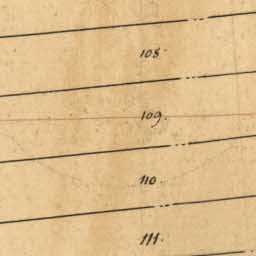 108.
109.
110.
111.